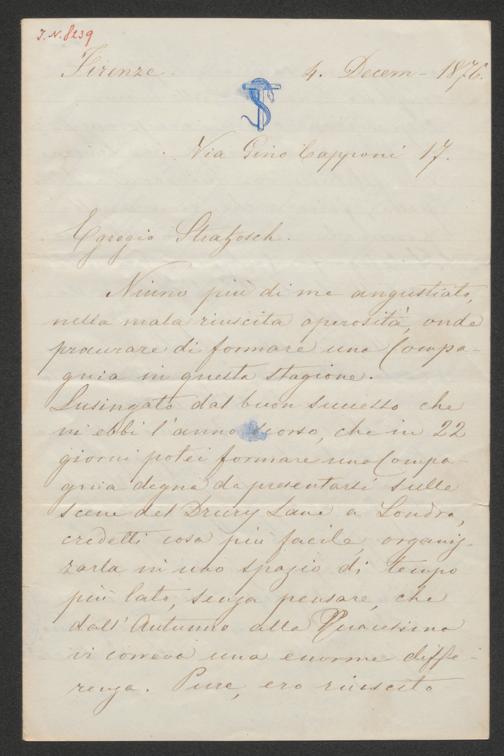 J. N. 8239
Firenze. 4. Decem - 1876.
Via Gino Capponi 17.
Egregio Stratzosch.
Niuno più di me angustiato,
nella mala riuscita operosità, onde
procurare di formare una Compa-
gnia in questa stagione.
Lusingato dal buon successo che
vi ebbi l'anno scorso, che in 22
giorni potei formare una Compa-
gnia degna da presentarsi sulle
scene del Drury Lane a Londra,
credetti cosa più facile, organiz-
zarla in uno spazio di tempo
più lato, senza pensare, che
dall'Autunno alla Quaresima
vi correva una enorme diffe-
renza. Pure, ero riuscito